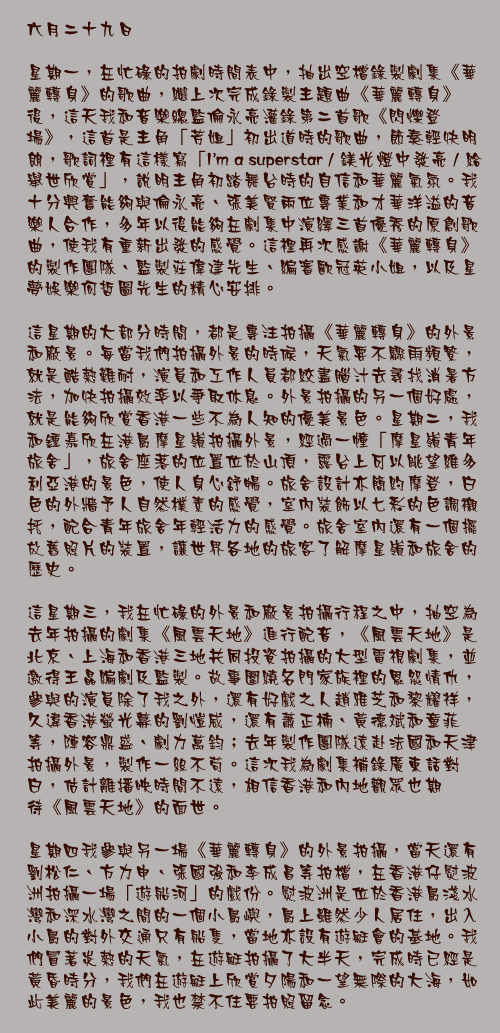 六月二十九日
星期一，在忙碌的拍劇時間表中，抽出空檔錄製劇集《華
麗轉身》的歌曲，繼上次完成錄製主題曲《華麗轉身》
後，這天我和音樂總監倫永亮灌錄第二首歌《閃爍登
場》，這首是主角「芳姐」初出道時的歌曲，節奏輕快明
朗，歌詞裡有這樣寫「I'm a superstar / 鎂光燈中發亮 / 路
舉世欣賞」，說明主角初踏舞台時的自信和華麗氣氛。我
十分興奮能夠與倫永亮、張美賢兩位專業和才華洋溢的音
樂人合作，多年以後能夠在劇集中演繹三首優秀的原創歌
曲，使我有重新出發的感覺。這裡再次感謝《華麗轉身》
的製作團隊、監製莊偉建先生、編審歐冠英小姐，以及星
夢娛樂何哲圖先生的精心安排。
這星期的大部分時間，都是專注拍攝《華麗轉身》的外景
和廠景。每當我們拍攝外景的時候，天氣要不驟雨頻繁，
就是酷熱難耐，演員和工作人員都絞盡腦汁去尋找消暑方
法，加快拍攝效率以爭取休息。外景拍攝的另一個好處，
就是能夠欣賞香港一些不為人知的優美景色。星期二，我
和鍾嘉欣在港島摩星嶺拍攝外景，經過一幢「摩星嶺青年
旅舍」，旅舍座落的位置位於山頂，露台上可以眺望維多
利亞港的景色，使人身心舒暢。旅舍設計亦簡約摩登，白
色的外牆予人自然樸素的感覺，室內裝飾以七彩的色調襯
托，配合青年旅舍年輕活力的感覺。旅舍室內還有一個擺
放舊照片的裝置，讓世界各地的旅客了解摩星嶺和旅舍的
歷史。
這星期三，我在忙碌的外景和廠景拍攝行程之中，抽空為
去年拍攝的劇集《風雲天地》進行配音，《風雲天地》是
北京、上海和香港三地共同投資拍攝的大型電視劇集，並
邀得王晶編劇及監製。故事圍繞名門家族裡的恩怨情仇，
參與的演員除了我之外，還有好戲之人趙雅芝和黎耀祥，
久違香港螢光幕的劉愷威，還有蕭正楠、黃德斌和童菲
等，陣容鼎盛、劇力萬鈞；去年製作團隊遠赴法國和天津
拍攝外景，製作一絲不苟。這次我為劇集補錄廣東話對
白，估計離播映時間不遠，相信香港和內地觀眾也期
待《風雲天地》的面世。
星期四我參與另一場《華麗轉身》的外景拍攝，當天還有
劉松仁、方力申、張國強和李成昌等拍檔，在香港仔熨波
洲拍攝一場「遊船河」的戲份。熨波洲是位於香港島淺水
灣和深水灣之間的一個小島嶼，島上雖然少人居住，出入
小島的對外交通只有船隻，當地亦設有遊艇會的基地。我
們冒著炎熱的天氣，在遊艇拍攝了大半天，完成時已經是
黃昏時分，我們在遊艇上欣賞夕陽和一望無際的大海，如
此美麗的景色，我也禁不住要拍照留念。